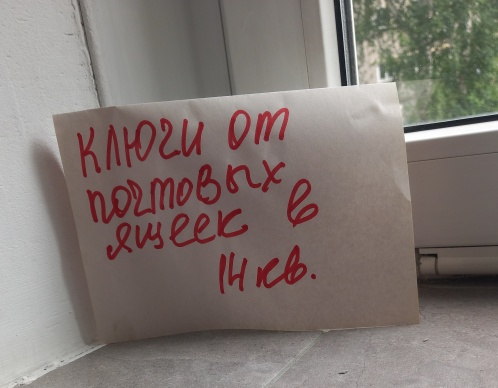 ключи от
почтовых
ящеек в
14 кв.